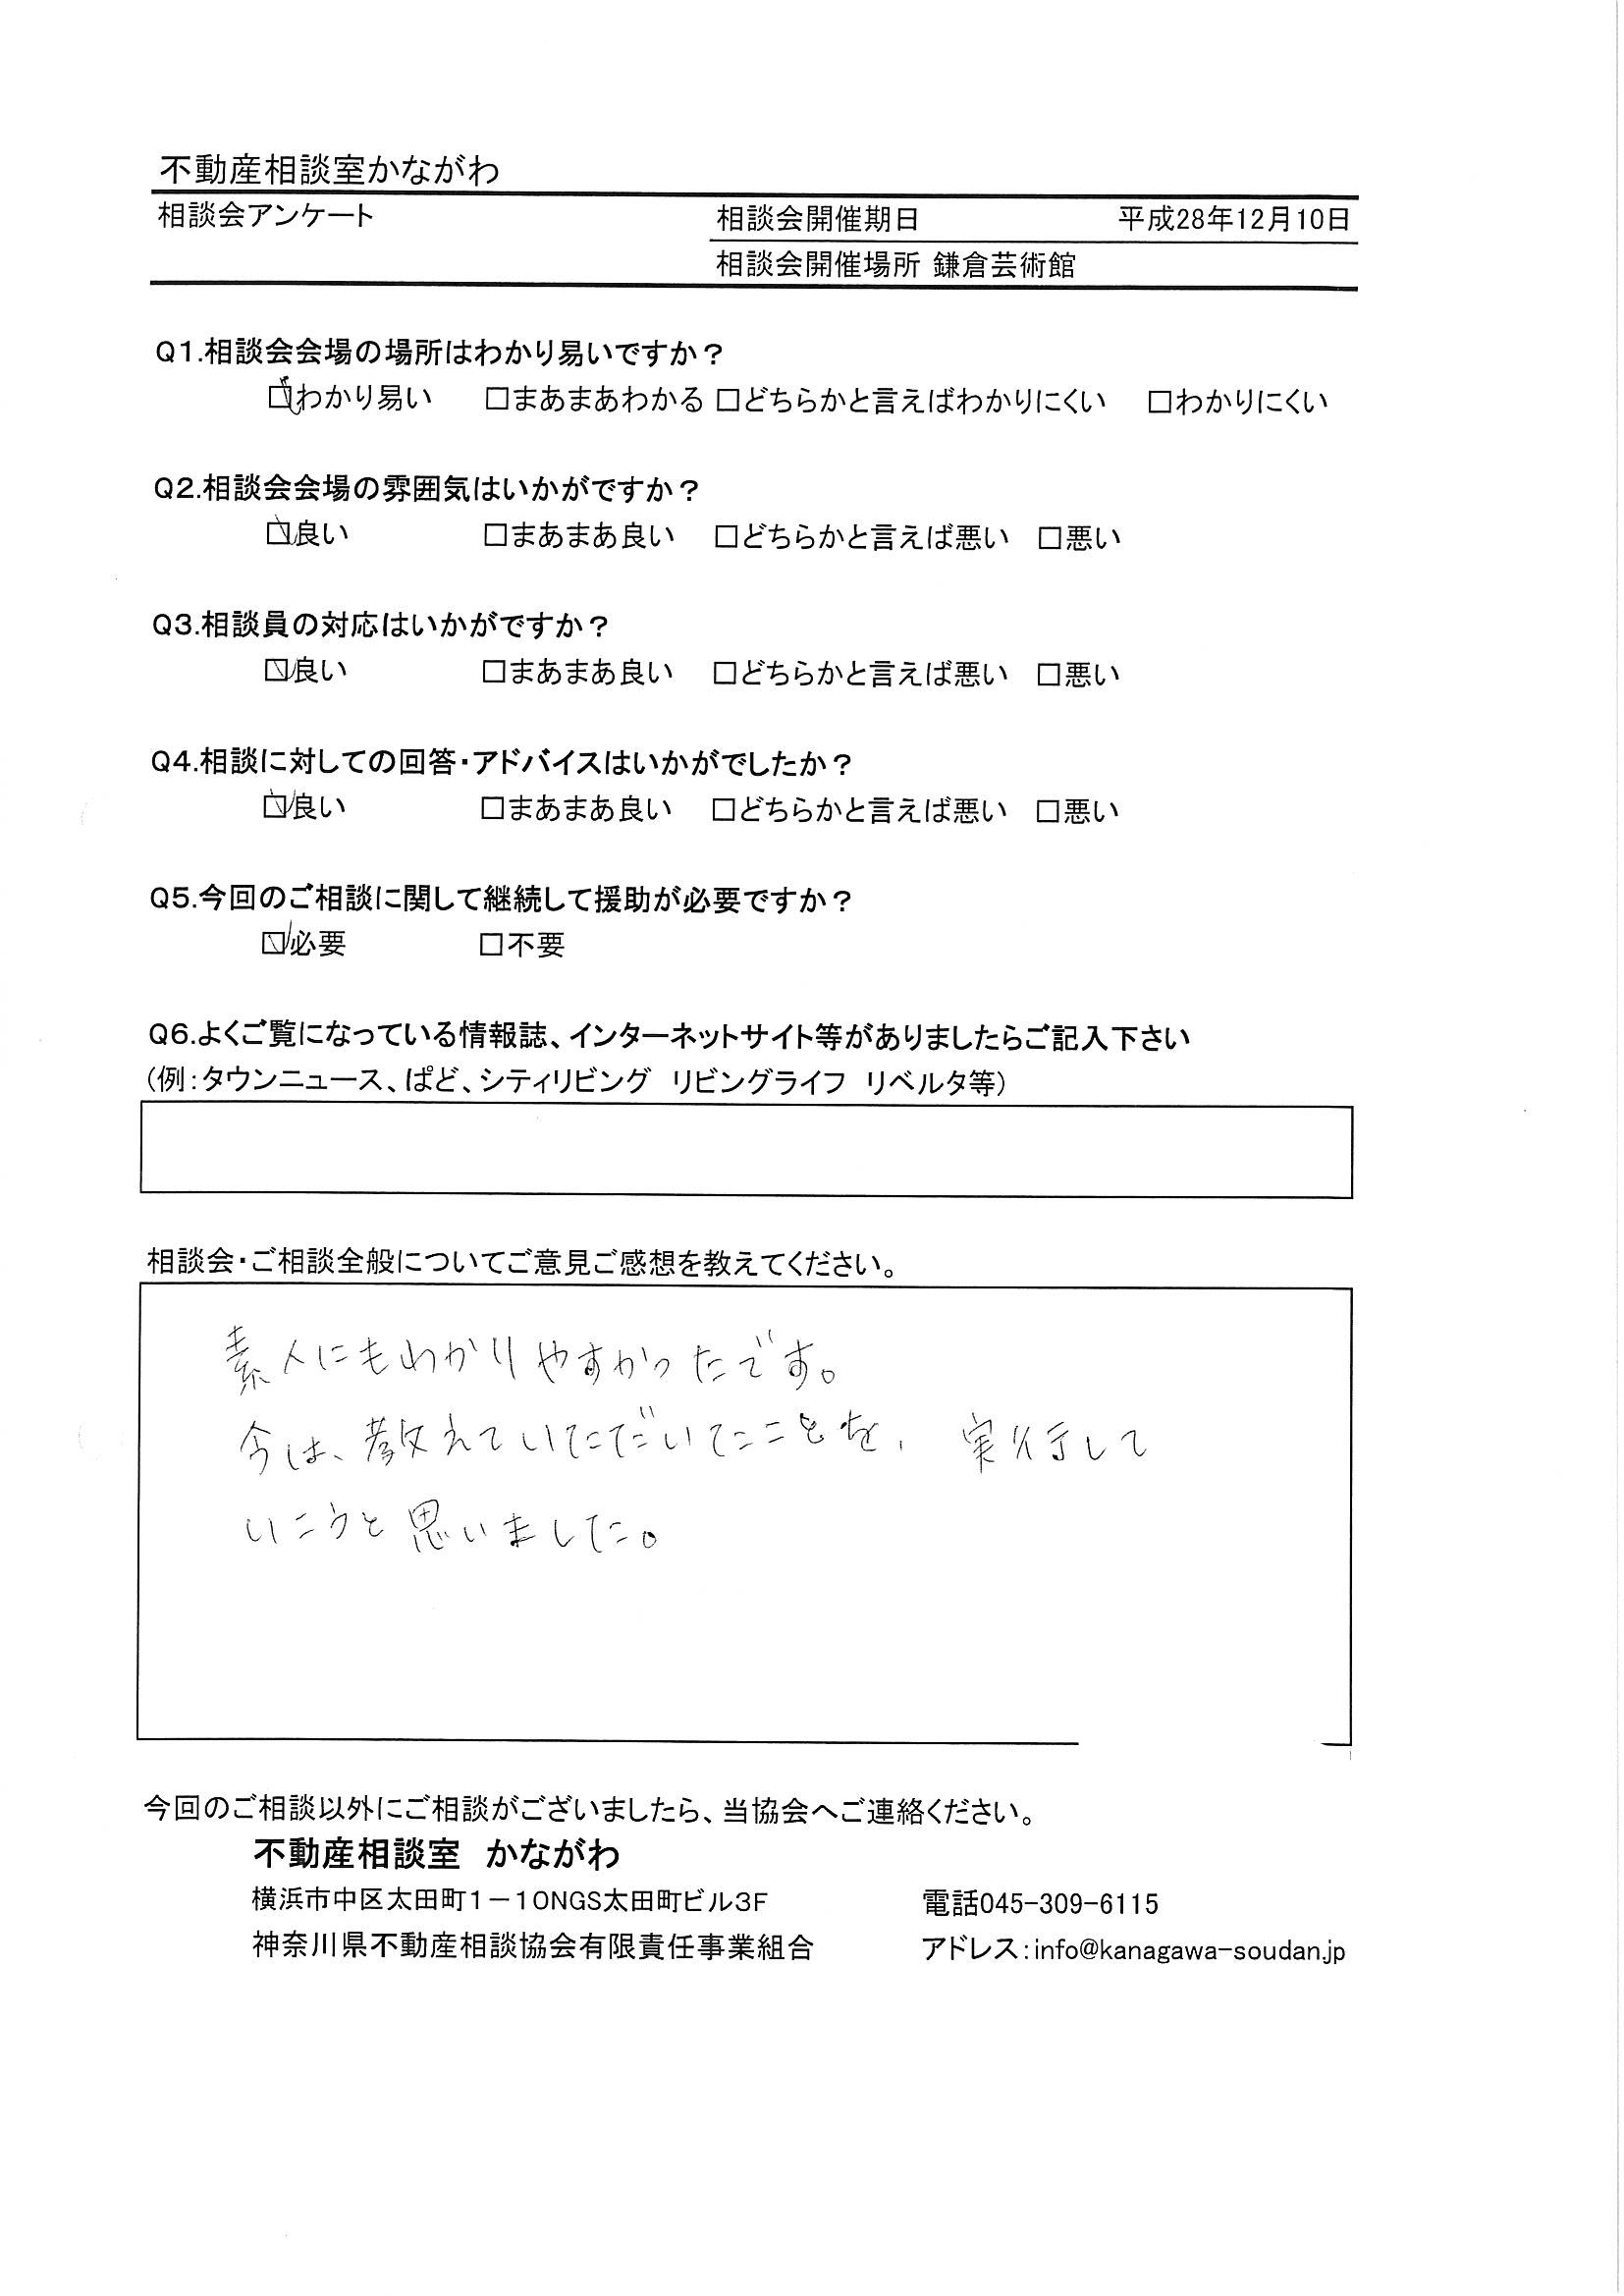 不動産相談室かながわ
相談会アンケート
相談会開催期日 平成28年12月10日
相談会開催場所 鎌倉芸術館
Q1.相談会会場の場所はわかり易いですか？
☑わかり易い □まあまあわかる □どちらかと言えばわかりにくい □わかりにくい
Q2.相談会会場の雰囲気はいかがですか？
☑良い □まあまあ良い □どちらかと言えば悪い □悪い
Q3.相談員の対応はいかがですか？
☑良い □まあまあ良い □どちらかと言えば悪い □悪い
Q4.相談に対しての回答・アドバイスはいかがでしたか？
☑良い □まあまあ良い □どちらかと言えば悪い □悪い
Q5.今回のご相談に関して継続して援助が必要ですか？
☑必要 □不要
Q6.よくご覧になっている情報誌、インターネットサイト等がありましたらご記入下さい
（例：タウンニュース、ぱど、シティリビング リビングライフ リベルタ等）
相談会・ご相談全般についてご意見ご感想を教えてください。
素人にもわかりやすかったです。
今は、教えていただいたことを、実行して
いこうと思いました。
今回のご相談以外にご相談がございましたら、当協会へご連絡ください。
不動産相談室 かながわ
横浜市中区太田町1－10NGS太田町ビル3F 電話045-309-6115
神奈川県不動産相談協会有限責任事業組合 アドレス：info@kanagawa-soudan.jp